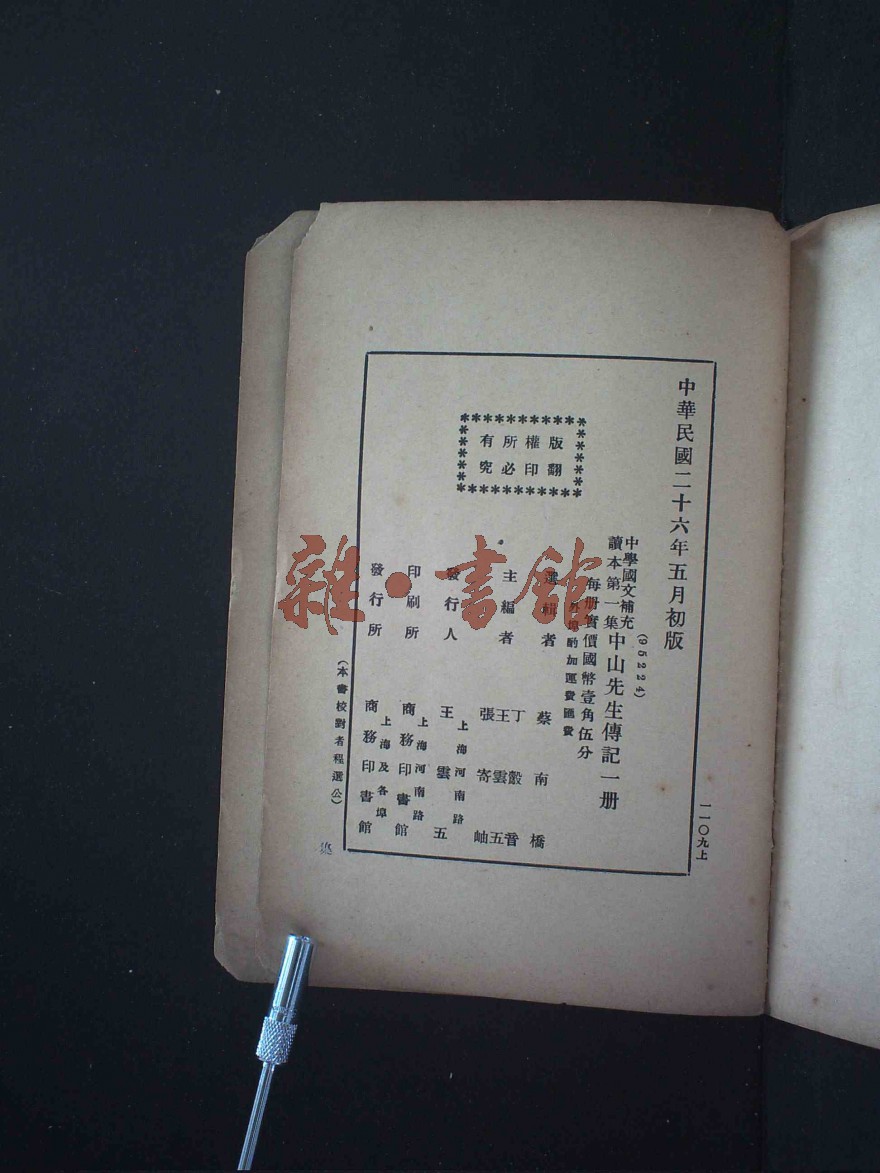 中華民國二十六年五月初版
(95224)
中學國文補充
讀本第一集
中山先生傳記一册
每册實價國幣壹角伍分
外埠酌加運費匯費
版權所有
翻印必究
選輯者 蔡南橋
主編者 丁瑴音 王雲五 張寄岫
發行人 王雲五
上海河南路
印刷所 商務印書館
上海河南路
發行所 商務印書館
上海及各埠
(本書校對者程選公)
一一〇九上
雜·書館